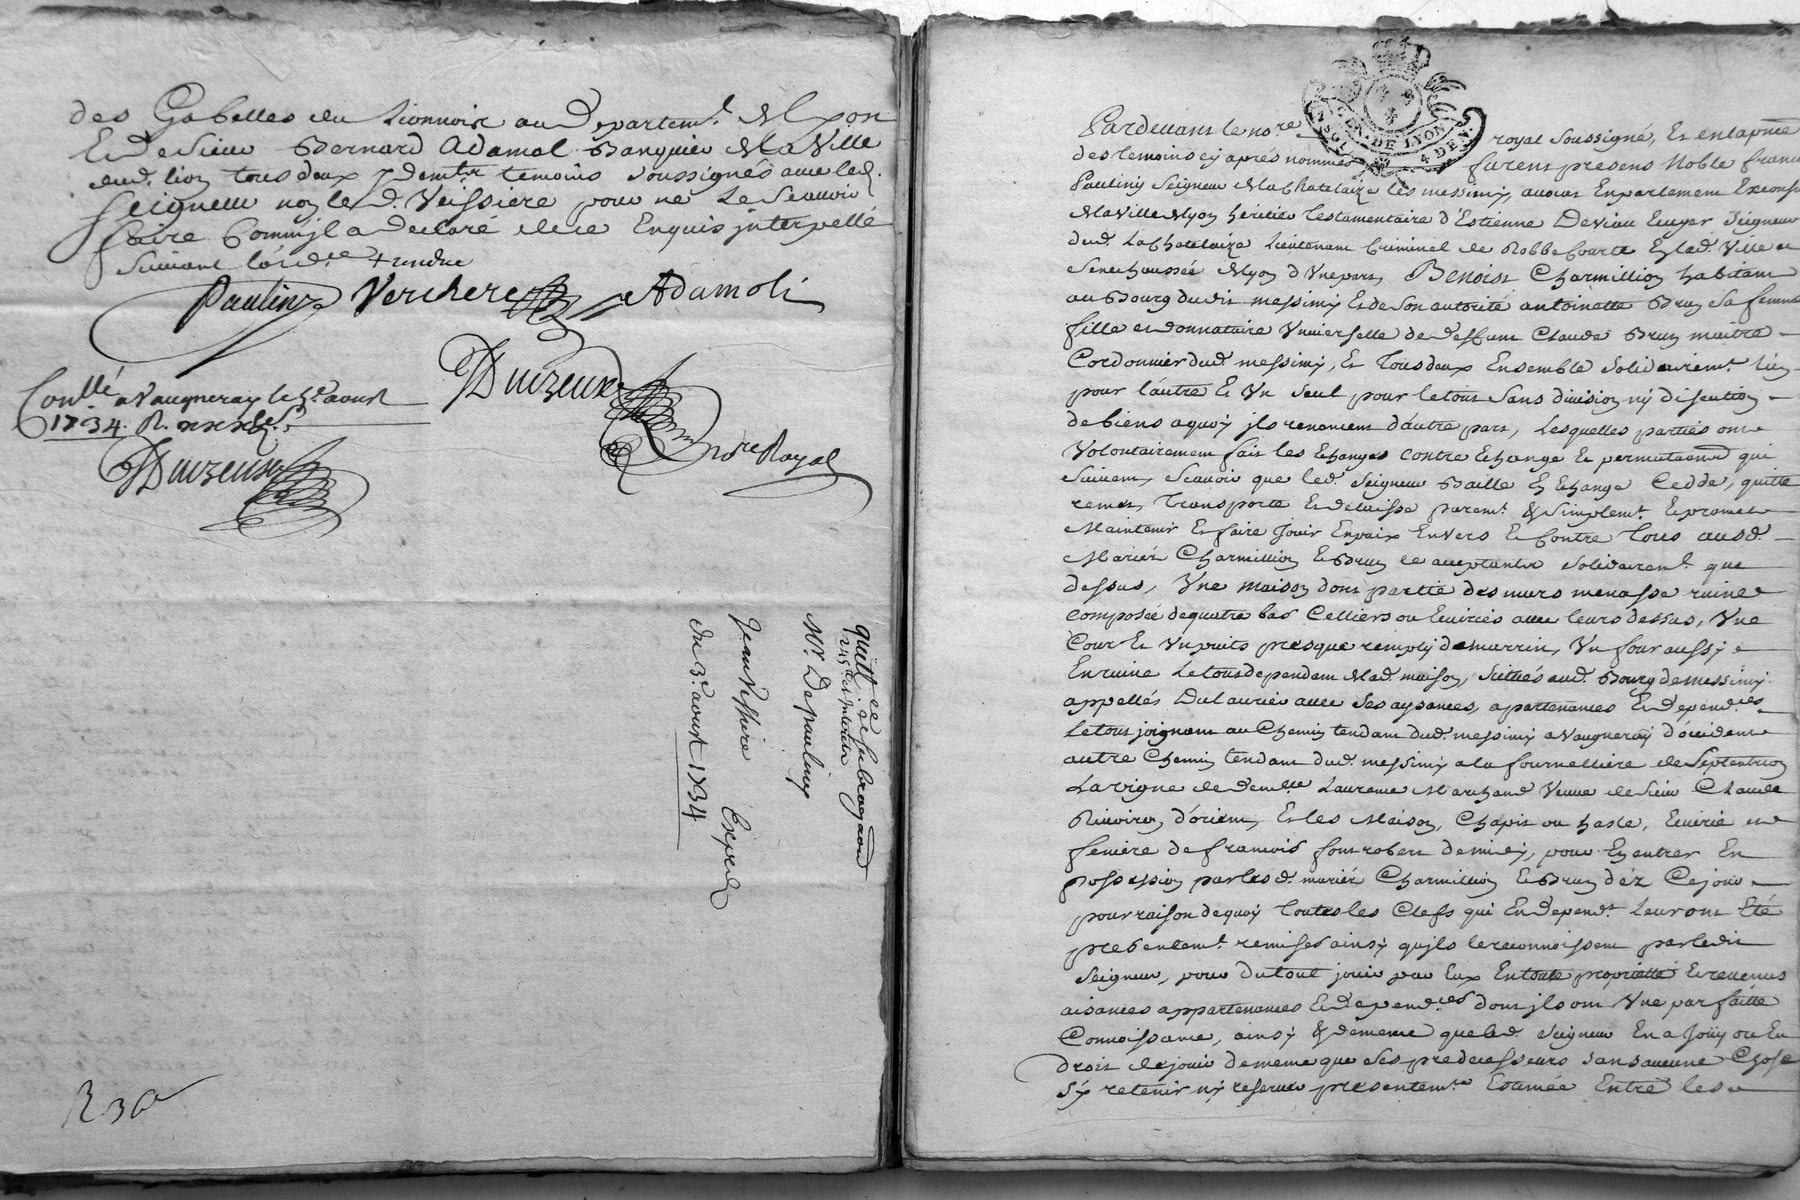 des Gabelles du Lionnois au Departemt. de Lyon
Et de Sieur Bernard Adamol Banquier de la Ville
dud. lion tous deux temoins soussignés avec led.
Seigneur non led. Veissiere pour ne le Scavoir
faire Comm'jl a declaré de ce Enquis jnterpellé
Suivant l'ord.ce + rendue
Paulin Verchere Adamoli
Duizeux
nore Royal
Conllé a Vaugneray le 5e aoust
1734. R.
Duizeux
quitt.ce de subrogaon
Mr. Depauliny
Jean Vessiere
Exped
du 3e. aoust 1734
R 30
GEN. DE LYON
4 DEN.
Pardevant le nore royal soussigné, Et en la pnce
des temoins cy aprés nommés furent presens Noble francois
Pauliny Seigneur de la Chatelaize les messimy, avocat En parlement Exconsul
de la Ville de Lyon héritier testamentaire d'Estienne Deviau Ecuyer Seigneur
dud. La Chatelaize Lieutenant Criminel de Robbe Courte En lad. Ville et
Senechaussée de Lyon d'Vne part, Benoist Charmillion habitant
au Bourg dudit messimy Et de Son autorité antoinette Brun Sa femme
fille et donnataire Vniverselle de deffunt Claude Brun maitre
Cordonnier dud. messimy, Et Tous deux Ensemble Solidairemt. l'un
pour l'autre Et Vn Seul pour le tout Sans division ny discution
de biens a quoy jls renoncent d'autre part, Lesquelles parties ont
Volontairement fait les Echanges contre Echange Et permutaons qui
Suivent, Scavoir que led. Seigneur Baille En Echange Cedde, quitte
remet, Transporte Et delaisse paremt. & Simplemt. Et promet
Maintenir Et faire Jouir En paix Envers Et Contre Tous ausd.
Mariés Charmillion Et Brun ce acceptants Solidairemt. que
dessus, Vne maison dont partie des murs menasse ruine
composée de quatre bas Celliers ou Ecuries avec leurs dessus, Vne
Cour Et Vn puits presque remply de marrin, Vn four aussy
En ruine Le tout dependant de lad. maison, Scitués aud. Bourg de messimy
appellés Du laurier avec Ses aysances, apartenances Et depend.ces
Le tout joignant au Chemin tendant dud. messimy a Vaugneray d'occident
autre Chemin tendant dud. messimy a la fournelliere de Septentrion
La vigne de demlle Laurence Marchand Veuve de Sieur Claude
Rivoiron d'orient, Et les Maison, Chapit ou hasle, Ecurie et
feniere de francois fontrobert de midy, pour En entrer En
possession par lesd. mariés Charmillion Et Brun déz Cejour
pour raison de quoy Toutes les Clefs qui En depend.t Leur ont Eté
presentemt. remises ainsy qu'jls le reconnoissent par ledit
Seigneur, pour du tout jouir par Eux En toute proprietté Et revenus
aisances appartenances Et depend.ces dont jls ont Vne parfaitte
Connoissance, ainsy & de meme que led. Seigneur En a Joüy ou En
droit de jouir de meme que Ses predecesseurs Sans aucune Chose
S'y retenir ny reserver presentemt. Estimée Entre les